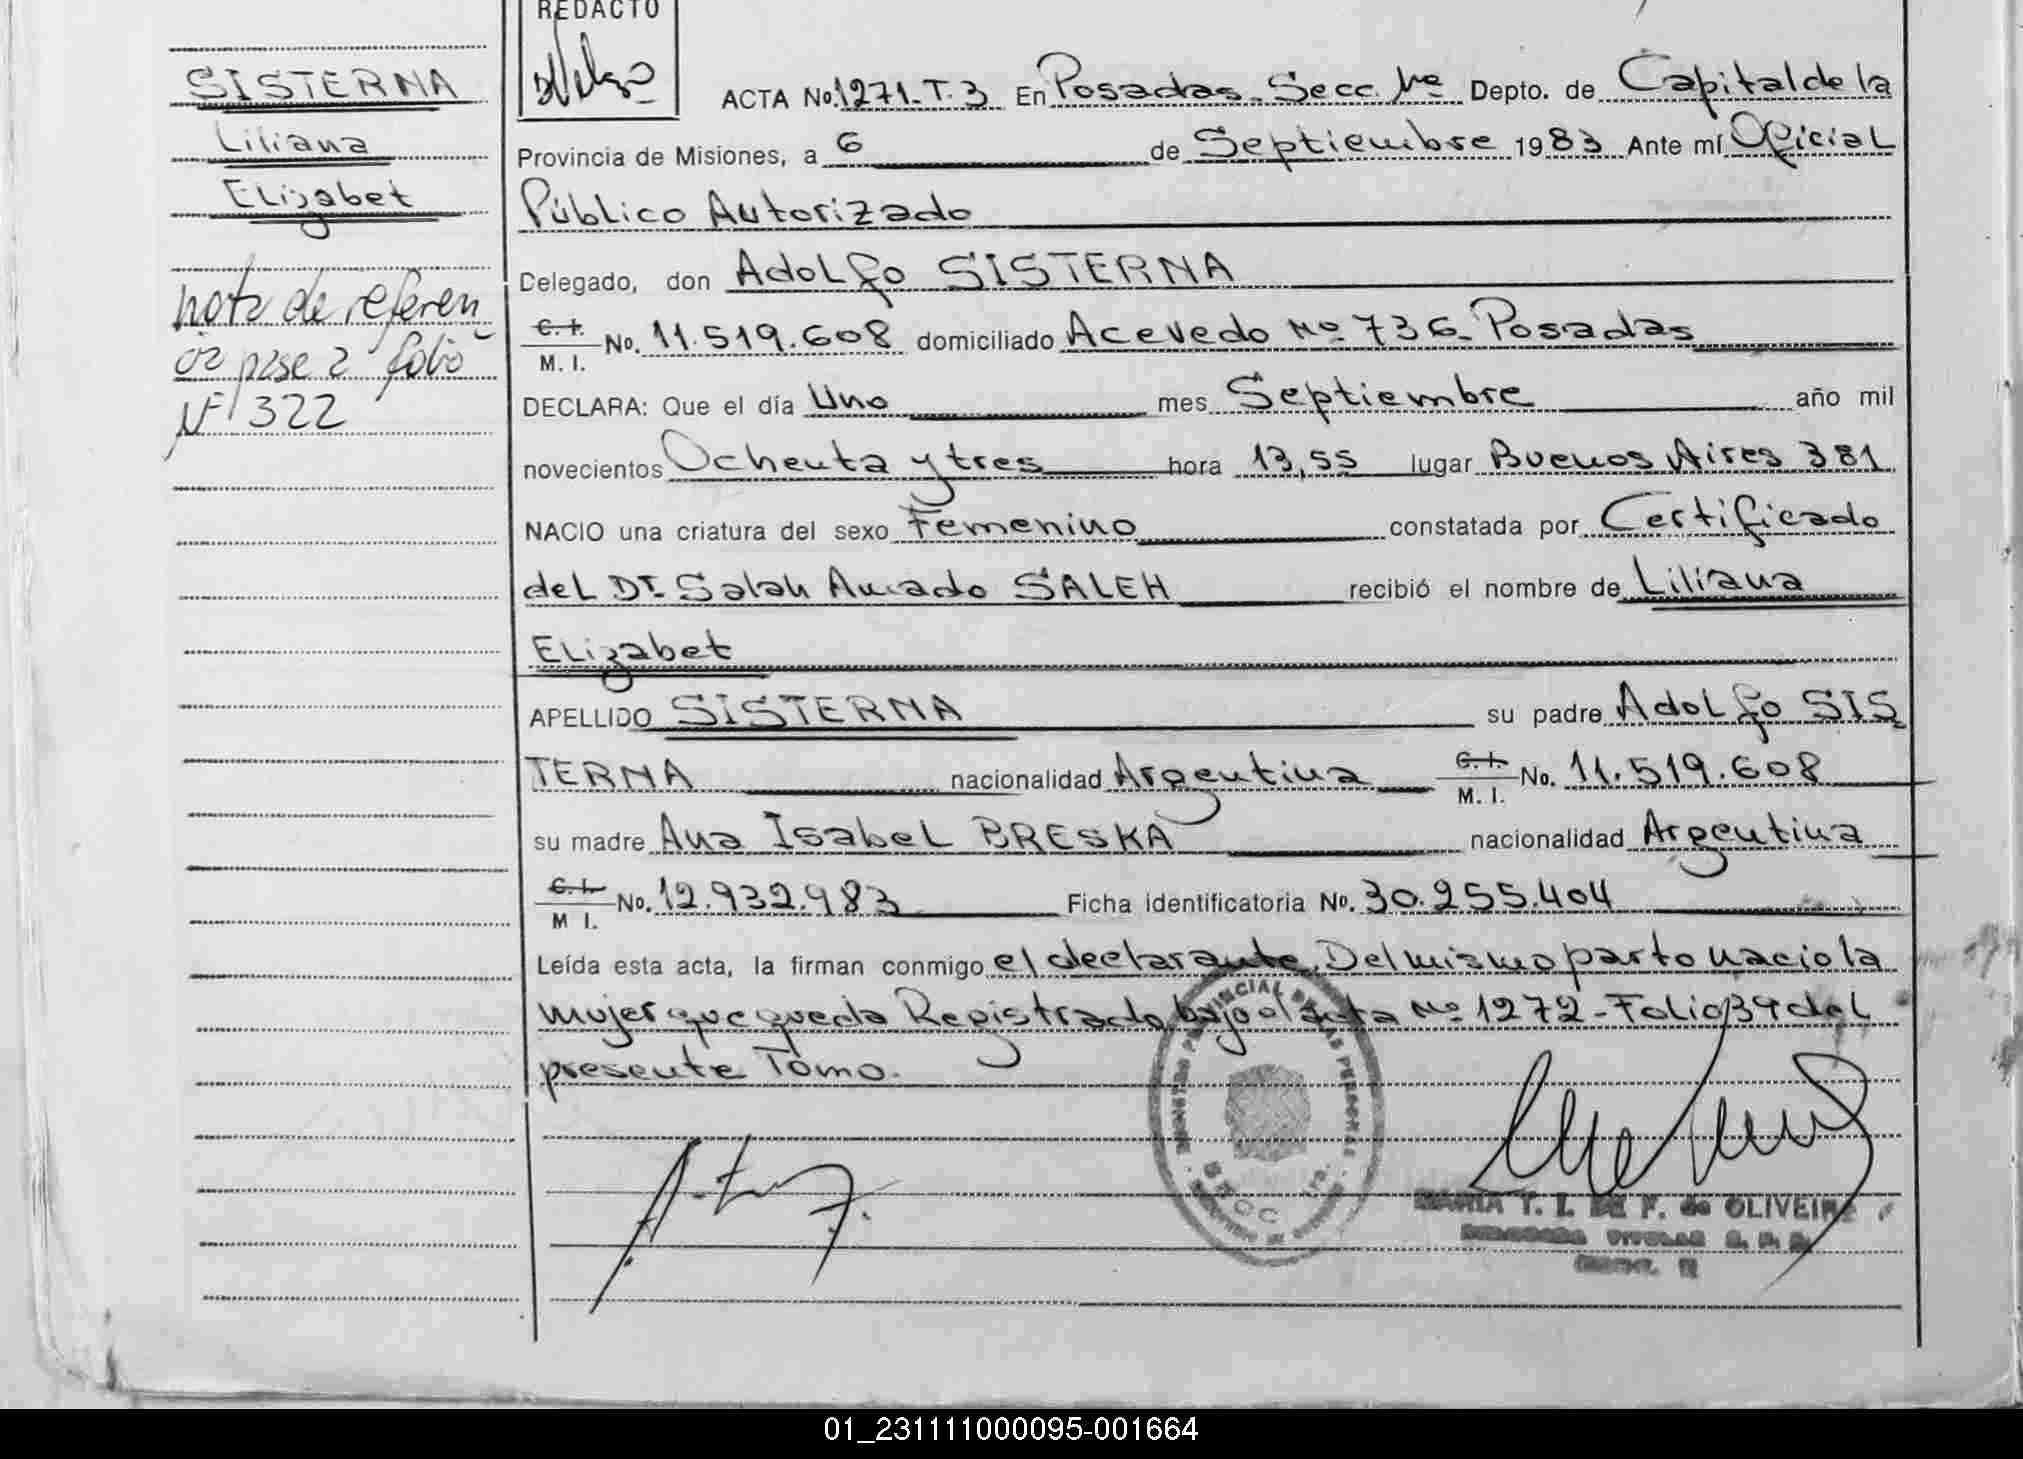 REDACTO
SISTERNA
Liliana
Elizabet
nota de referen
cia pase a folio
Nº 322
ACTA No. 1271-T.3 En Posadas-Secc. 1ra Depto. de Capital de la
Provincia de Misiones, a 6 de Septiembre 1983 Ante mí Oficial
Público Autorizado
Delegado, don Adolfo SISTERNA
C. I.
M. I. No. 11.519.608 domiciliado Acevedo No 736-Posadas
DECLARA: Que el día Uno mes Septiembre año mil
novecientos Ochenta y tres hora 13,55 lugar Buenos Aires 381
NACIO una criatura del sexo Femenino constatada por Certificado
del Dr. Salah Amado SALEH recibió el nombre de Liliana
Elizabet
APELLIDO SISTERNA su padre Adolfo SIS
TERNA nacionalidad Argentina C. I.
M. I. No. 11.519.608
su madre Ana Isabel BRESKA nacionalidad Argentina
C. I.
M I. No. 12.932.983 Ficha identificatoria No. 30.255.404
Leída esta acta, la firman conmigo el declarante. Del mismo parto nacio la
mujer que queda Registrado bajo el acta No 1272-Folio 34 del
presente Tomo.
PROVINCIAL DE LAS PERSONAS
MARIA T. I. DE F. de OLIVEIRA
TITULAR
01_231111000095-001664